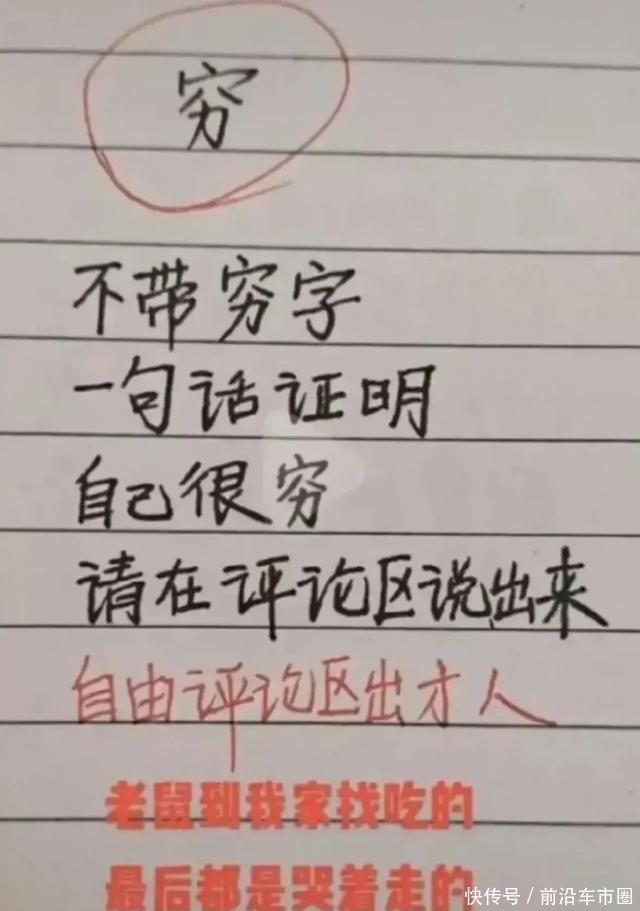 穷
不带穷字
一句话证明
自己很穷
请在评论区说出来
自由评论区出才人
老鼠到我家找吃的
最后都是哭着走的
快传号/前沿车市圈